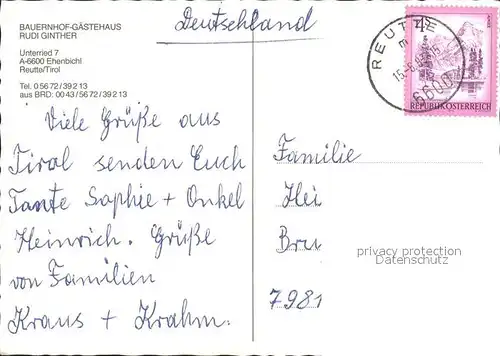 Deutschland
BAUERNHOF-GÄSTEHAUS
RUDI GINTHER
Unterried 7
A-6600 Ehenbichl
Reutte/Tirol
Tel. 0 56 72 / 39 2 13
aus BRD: 00 43 / 56 72 / 39 2 13
Viele Grüße aus
Tirol senden Euch
Tante Sophie + Onkel
Heinrich. Grüße
von Familien
Kraus + Krahm.
REUTTE
6600
REPUBLIK ÖSTERREICH
Familie
Hei
Bru
7981
privacy protection
Datenschutz